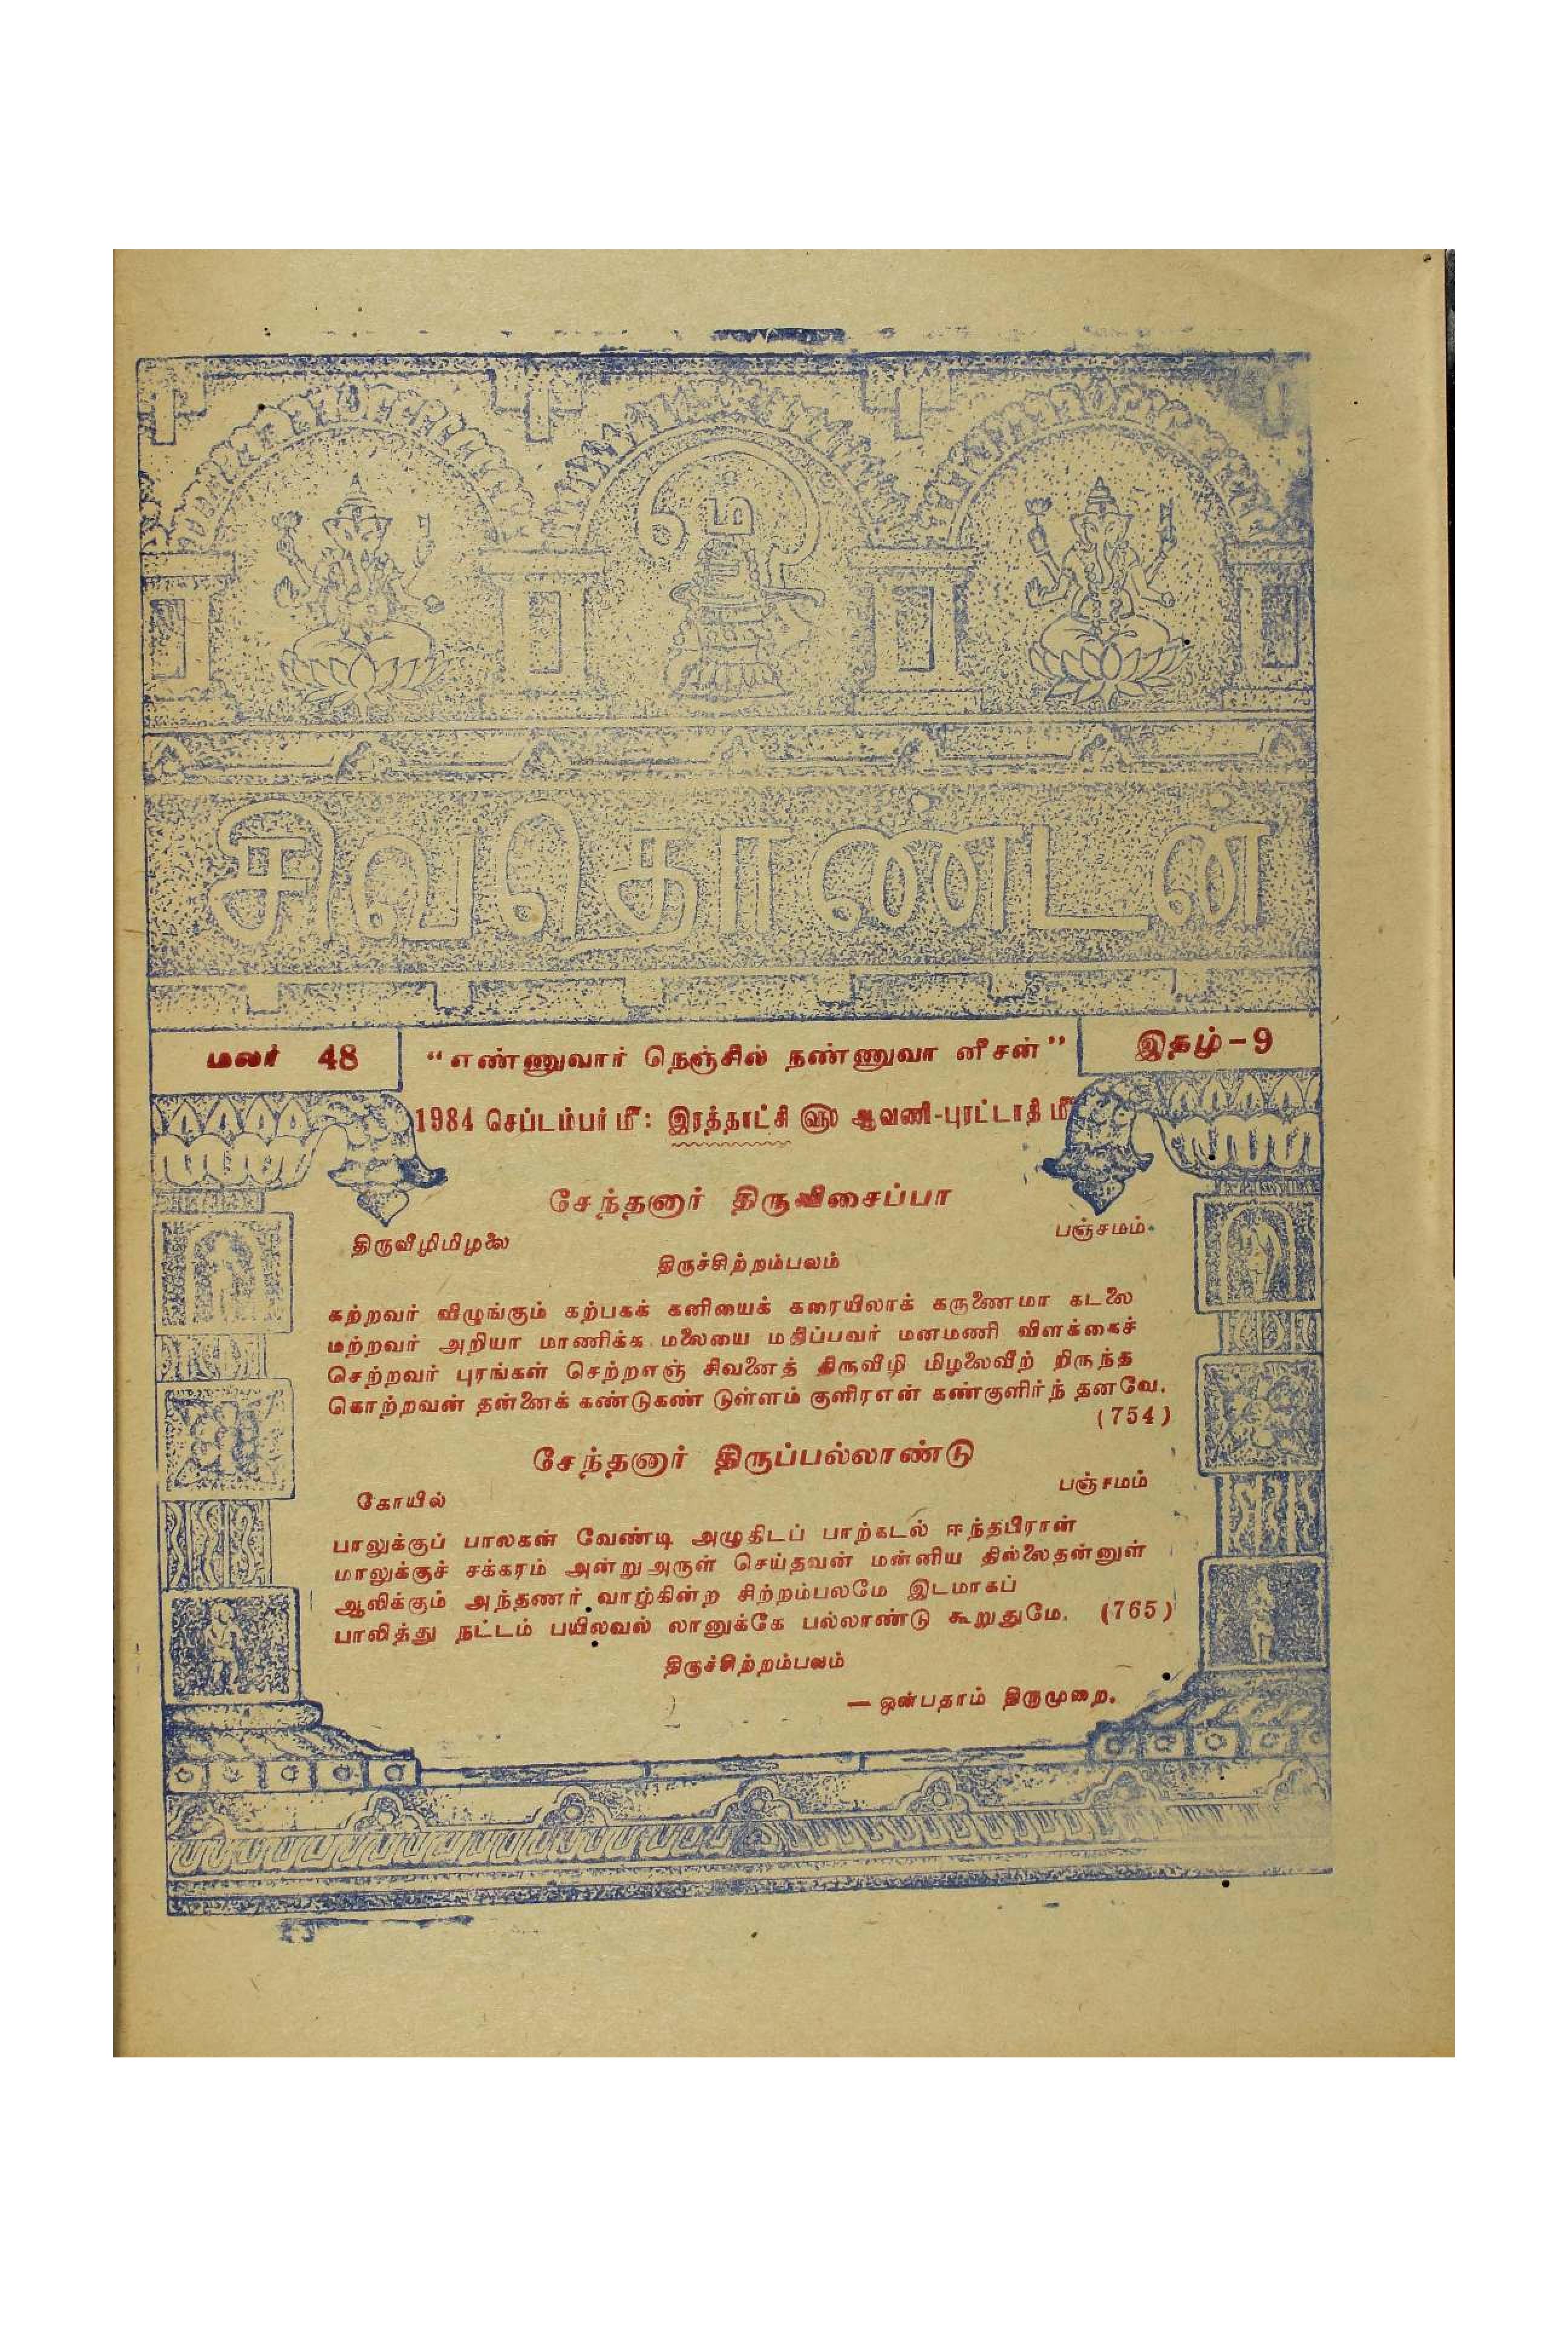 ஓம்
சிவதொண்டன்
மலர் 48 "எண்ணுவார் நெஞ்சில் நண்ணுவா னீசன்" இதழ்-9
1984 செப்டம்பர் மீ: இரத்தாட்சி ௵ ஆவணி-புரட்டாதி மீ
சேந்தனார் திருவிசைப்பா
திருவீழிமிழலை பஞ்சமம்.
திருச்சிற்றம்பலம்
கற்றவர் விழுங்கும் கற்பகக் கனியைக் கரையிலாக் கருணைமா கடலை
மற்றவர் அறியா மாணிக்க மலையை மதிப்பவர் மனமணி விளக்கைச்
செற்றவர் புரங்கள் செற்றஎஞ் சிவனைத் திருவீழி மிழலைவீற் றிருந்த
கொற்றவன் தன்னைக் கண்டுகண் டுள்ளம் குளிரஎன் கண்குளிர்ந் தனவே.
(754)
சேந்தனார் திருப்பல்லாண்டு
கோயில் பஞ்சமம்
பாலுக்குப் பாலகன் வேண்டி அழுதிடப் பாற்கடல் ஈந்தபிரான்
மாலுக்குச் சக்கரம் அன்றுஅருள் செய்தவன் மன்னிய தில்லைதன்னுள்
ஆலிக்கும் அந்தணர் வாழ்கின்ற சிற்றம்பலமே இடமாகப்
பாலித்து நட்டம் பயிலவல் லானுக்கே பல்லாண்டு கூறுதுமே. (765)
திருச்சிற்றம்பலம்
— ஒன்பதாம் திருமுறை.